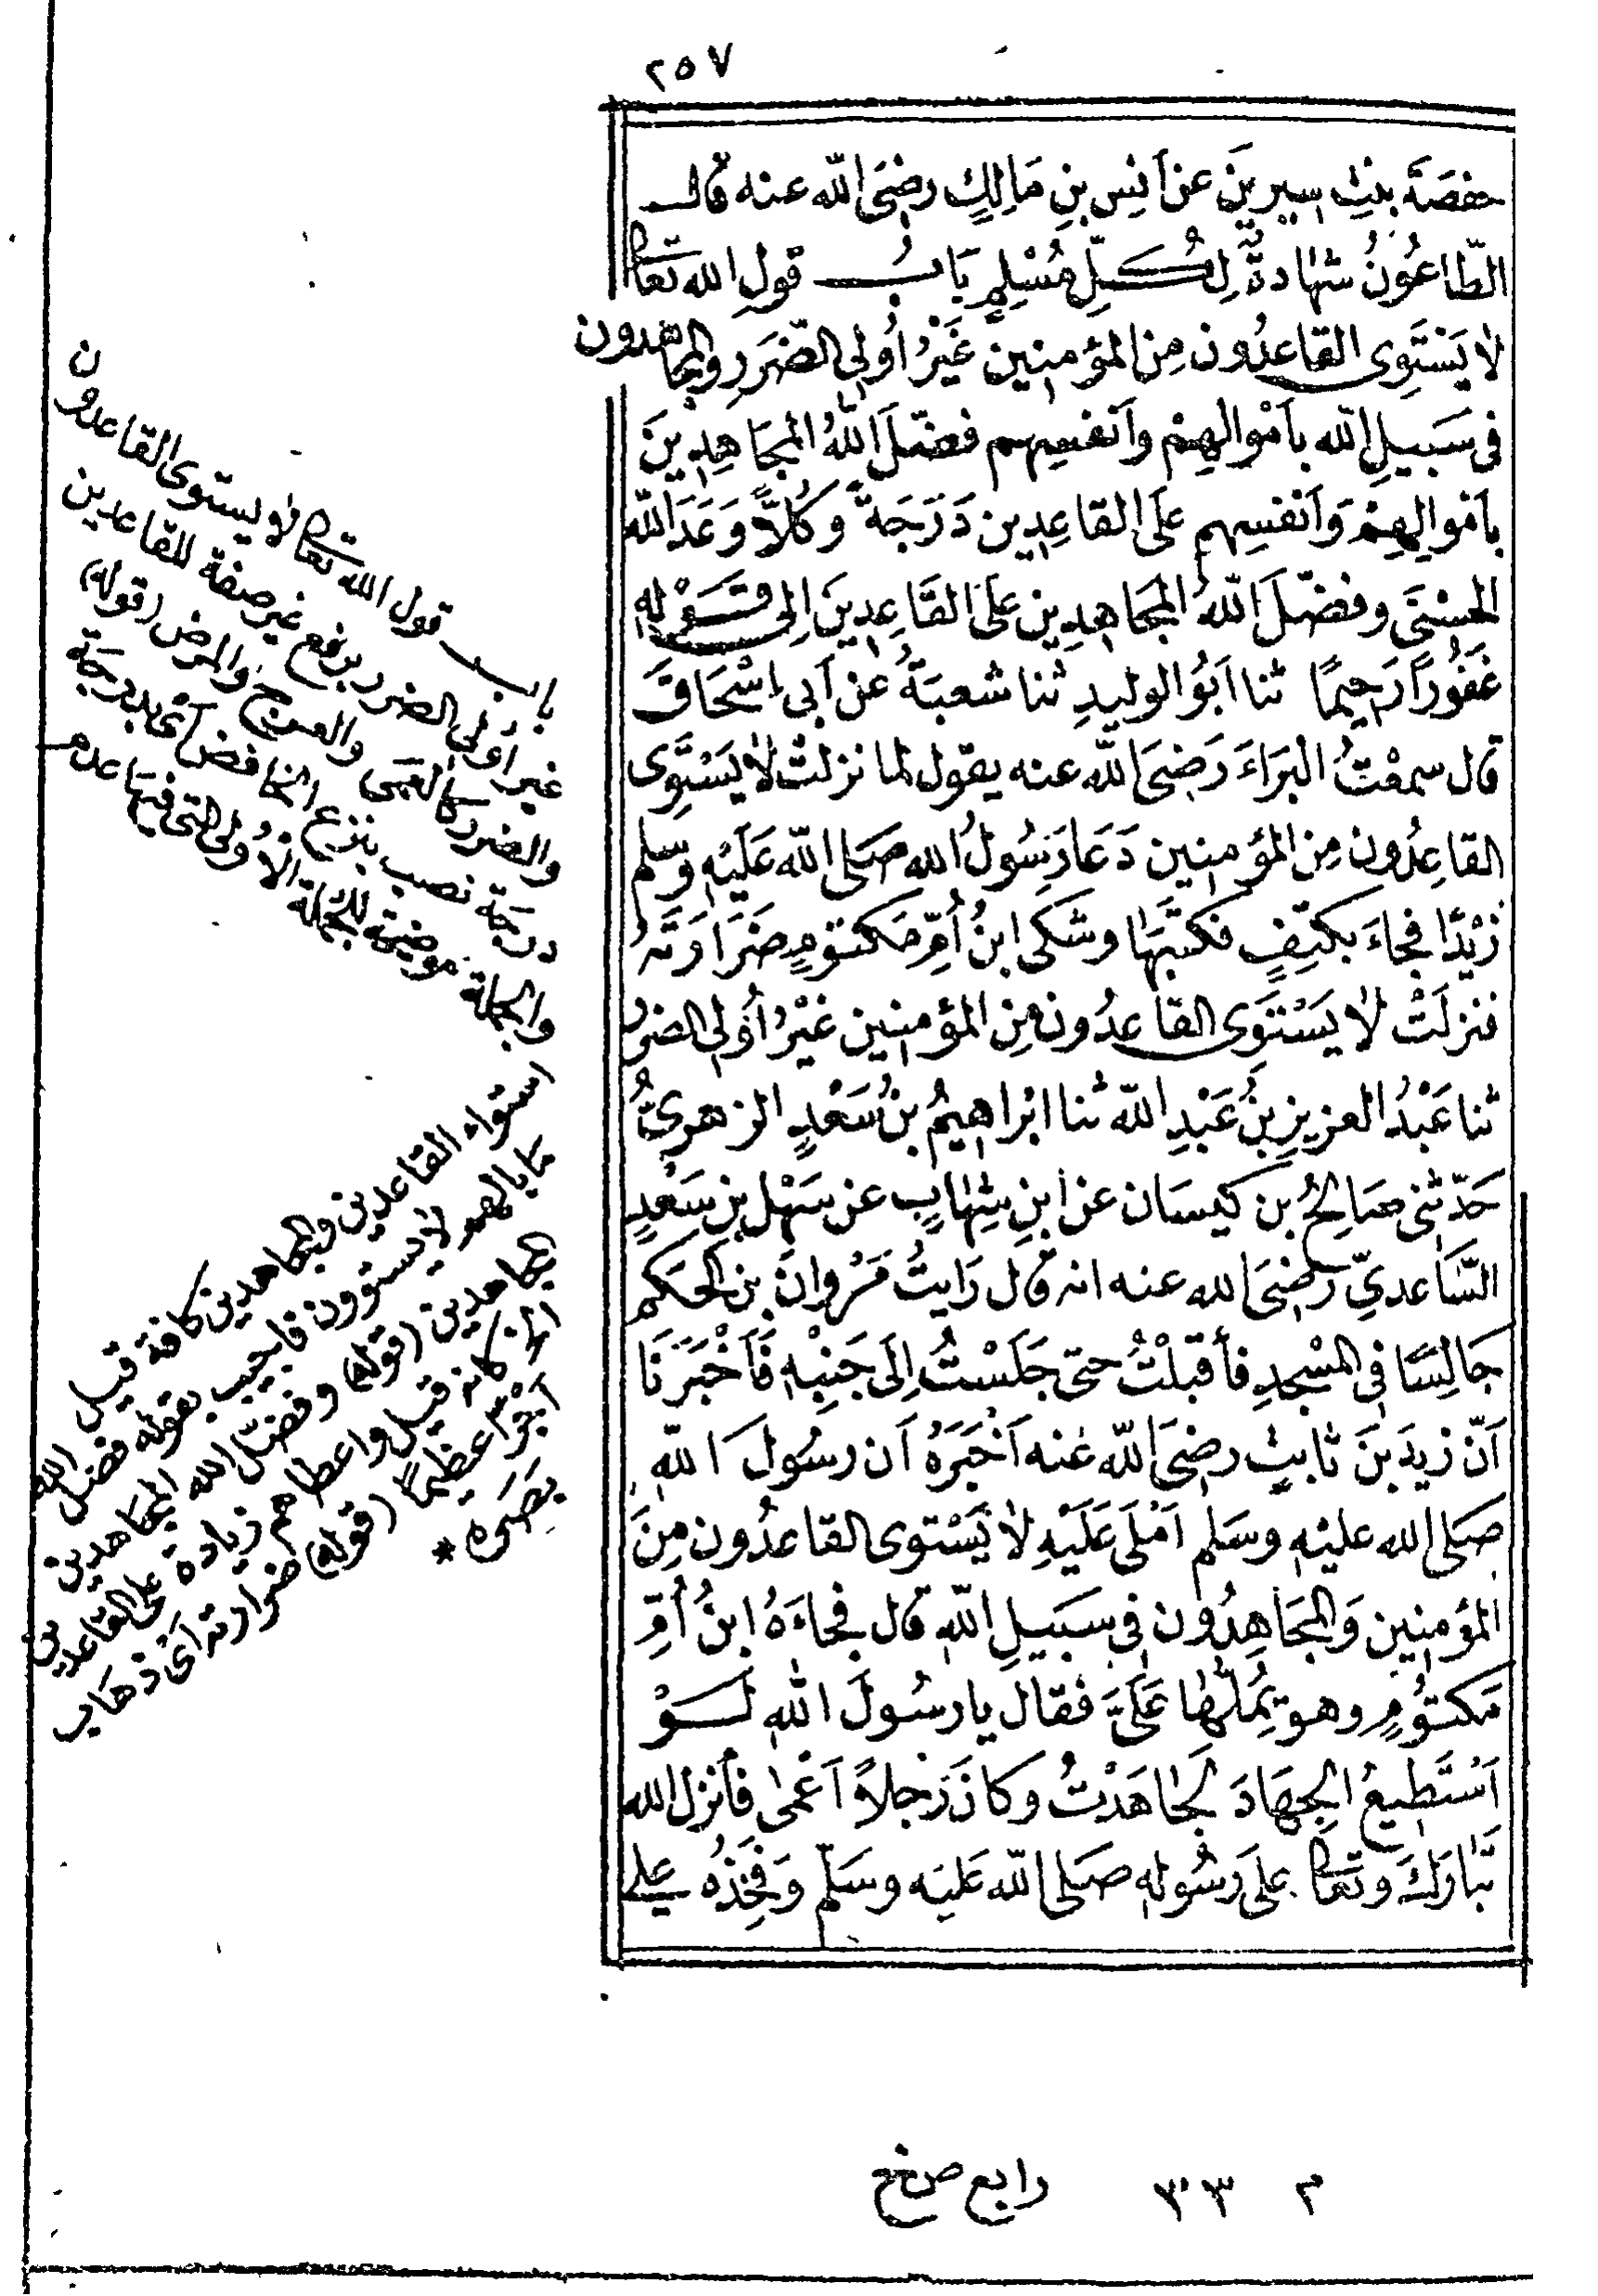 ٢٥٧
حفصَةَ بنتِ سِيرِينَ عن أنسِ بنِ مَالِكٍ رضِىَ الله عنه قال
الطّاعُونُ شهَادةٌ لِكُلِّ مُسْلِمٍ بَابُ قولِ الله تعَالى
لا يَسْتَوِى القاعدُون مِن المؤمنين غَيْرُ أولى الضّرَرِ والمجَاهدون
فى سَبيلِ الله بأمْوالهِمْ وأنفسِهم فضّلَ اللهُ المجَاهِدِينَ
بأموالِهِمْ وَأنفسِهم علَى القاعِدِين دَرَجَةً وكُلاًّ وَعَدَ الله
الحسْنَى وفضّلَ اللهُ المجَاهدِين علَى القَاعِدِينَ إلى قَوْلِهِ
غَفُورًا رَحِيمًا ثنا أبُو الوليدِ ثنا شعبَةُ عن أبى إسْحَاقَ
قال سمعْتُ البَرَاءَ رَضِىَ الله عنه يقول لما نزلتْ لا يَسْتَوِى
القاعِدُون مِن المؤمنين دَعَا رَسُولُ الله صَلى الله عَلَيْهِ وَسلم
زيْدًا فجاءَ بكتِفٍ فكتبَهَا وشكى ابنُ أمِّ مَكتومٍ ضَرَارَتَهُ
فنزلَتْ لا يَسْتَوِى القاعِدُون مِن المؤمنين غَيْرُ أولى الضررِ
ثنا عَبْدُ العزيزِ بنُ عَبْدِ الله ثنا ابْراهيمُ بنُ سَعْدٍ الزهرىُّ
حَدّثنى صَالِحُ بن كيسَان عن ابنِ شِهَابٍ عن سَهْلِ بنِ سَعْدٍ
السَّاعدىِّ رَضِىَ الله عنه انه قال رَايتُ مَرْوانَ بن الحَكمِ
جَالِسًا فى المسْجدِ فأقبلْتُ حتى جَلَسْتُ إلَى جَنبِهِ فَأخْبَرَنَا
أنّ زيدَ بنَ ثابتٍ رضىَ الله عنه أخْبَرَهُ أن رسُولَ الله
صَلى الله عليْهِ وسَلم أمْلَى عَلَيْهِ لا يَسْتوى القاعدُون مِنَ
المؤمنِين وَالمجَاهِدُون فى سبَيلِ اللهِ قال فجاءَهُ ابنُ أمِّ
مَكتومٍ وهو يُمِلّهَا عَلَىَّ فقال يا رسُولَ اللهِ لَوْ
أسْتَطِيعُ الجِهَادَ لجاهَدْتُ وكانَ رَجلاً أعْمى فأنزل الله
تبَارَكَ وتعَالى علَى رَسُولِهِ صَلى الله عَليْه وسَلّم وَفَخِذُه على
باب قول الله تعالى لا يستوى القاعدون
غير أولى الضرر برفع غير صفة للقاعدين
والضرر كالعمى والعرج والمرض (قوله)
درجة نصب بنزع الخافض أى بدرجة
والجملة موضحة للجملة الأولى التى فيها عدم
استواء القاعدين والمجاهدين كافة قيل
ما بالهم لا يستوون فأجيب بقوله فضل الله
المجاهدين (قوله) وفضل الله المجاهدين
الخ كانه قيل واعطاهم زيادة على القاعدين
أجرًا عظيمًا (قوله) ضرارته أى ذهاب
بصره *
م ٣٣ رابع ص خ